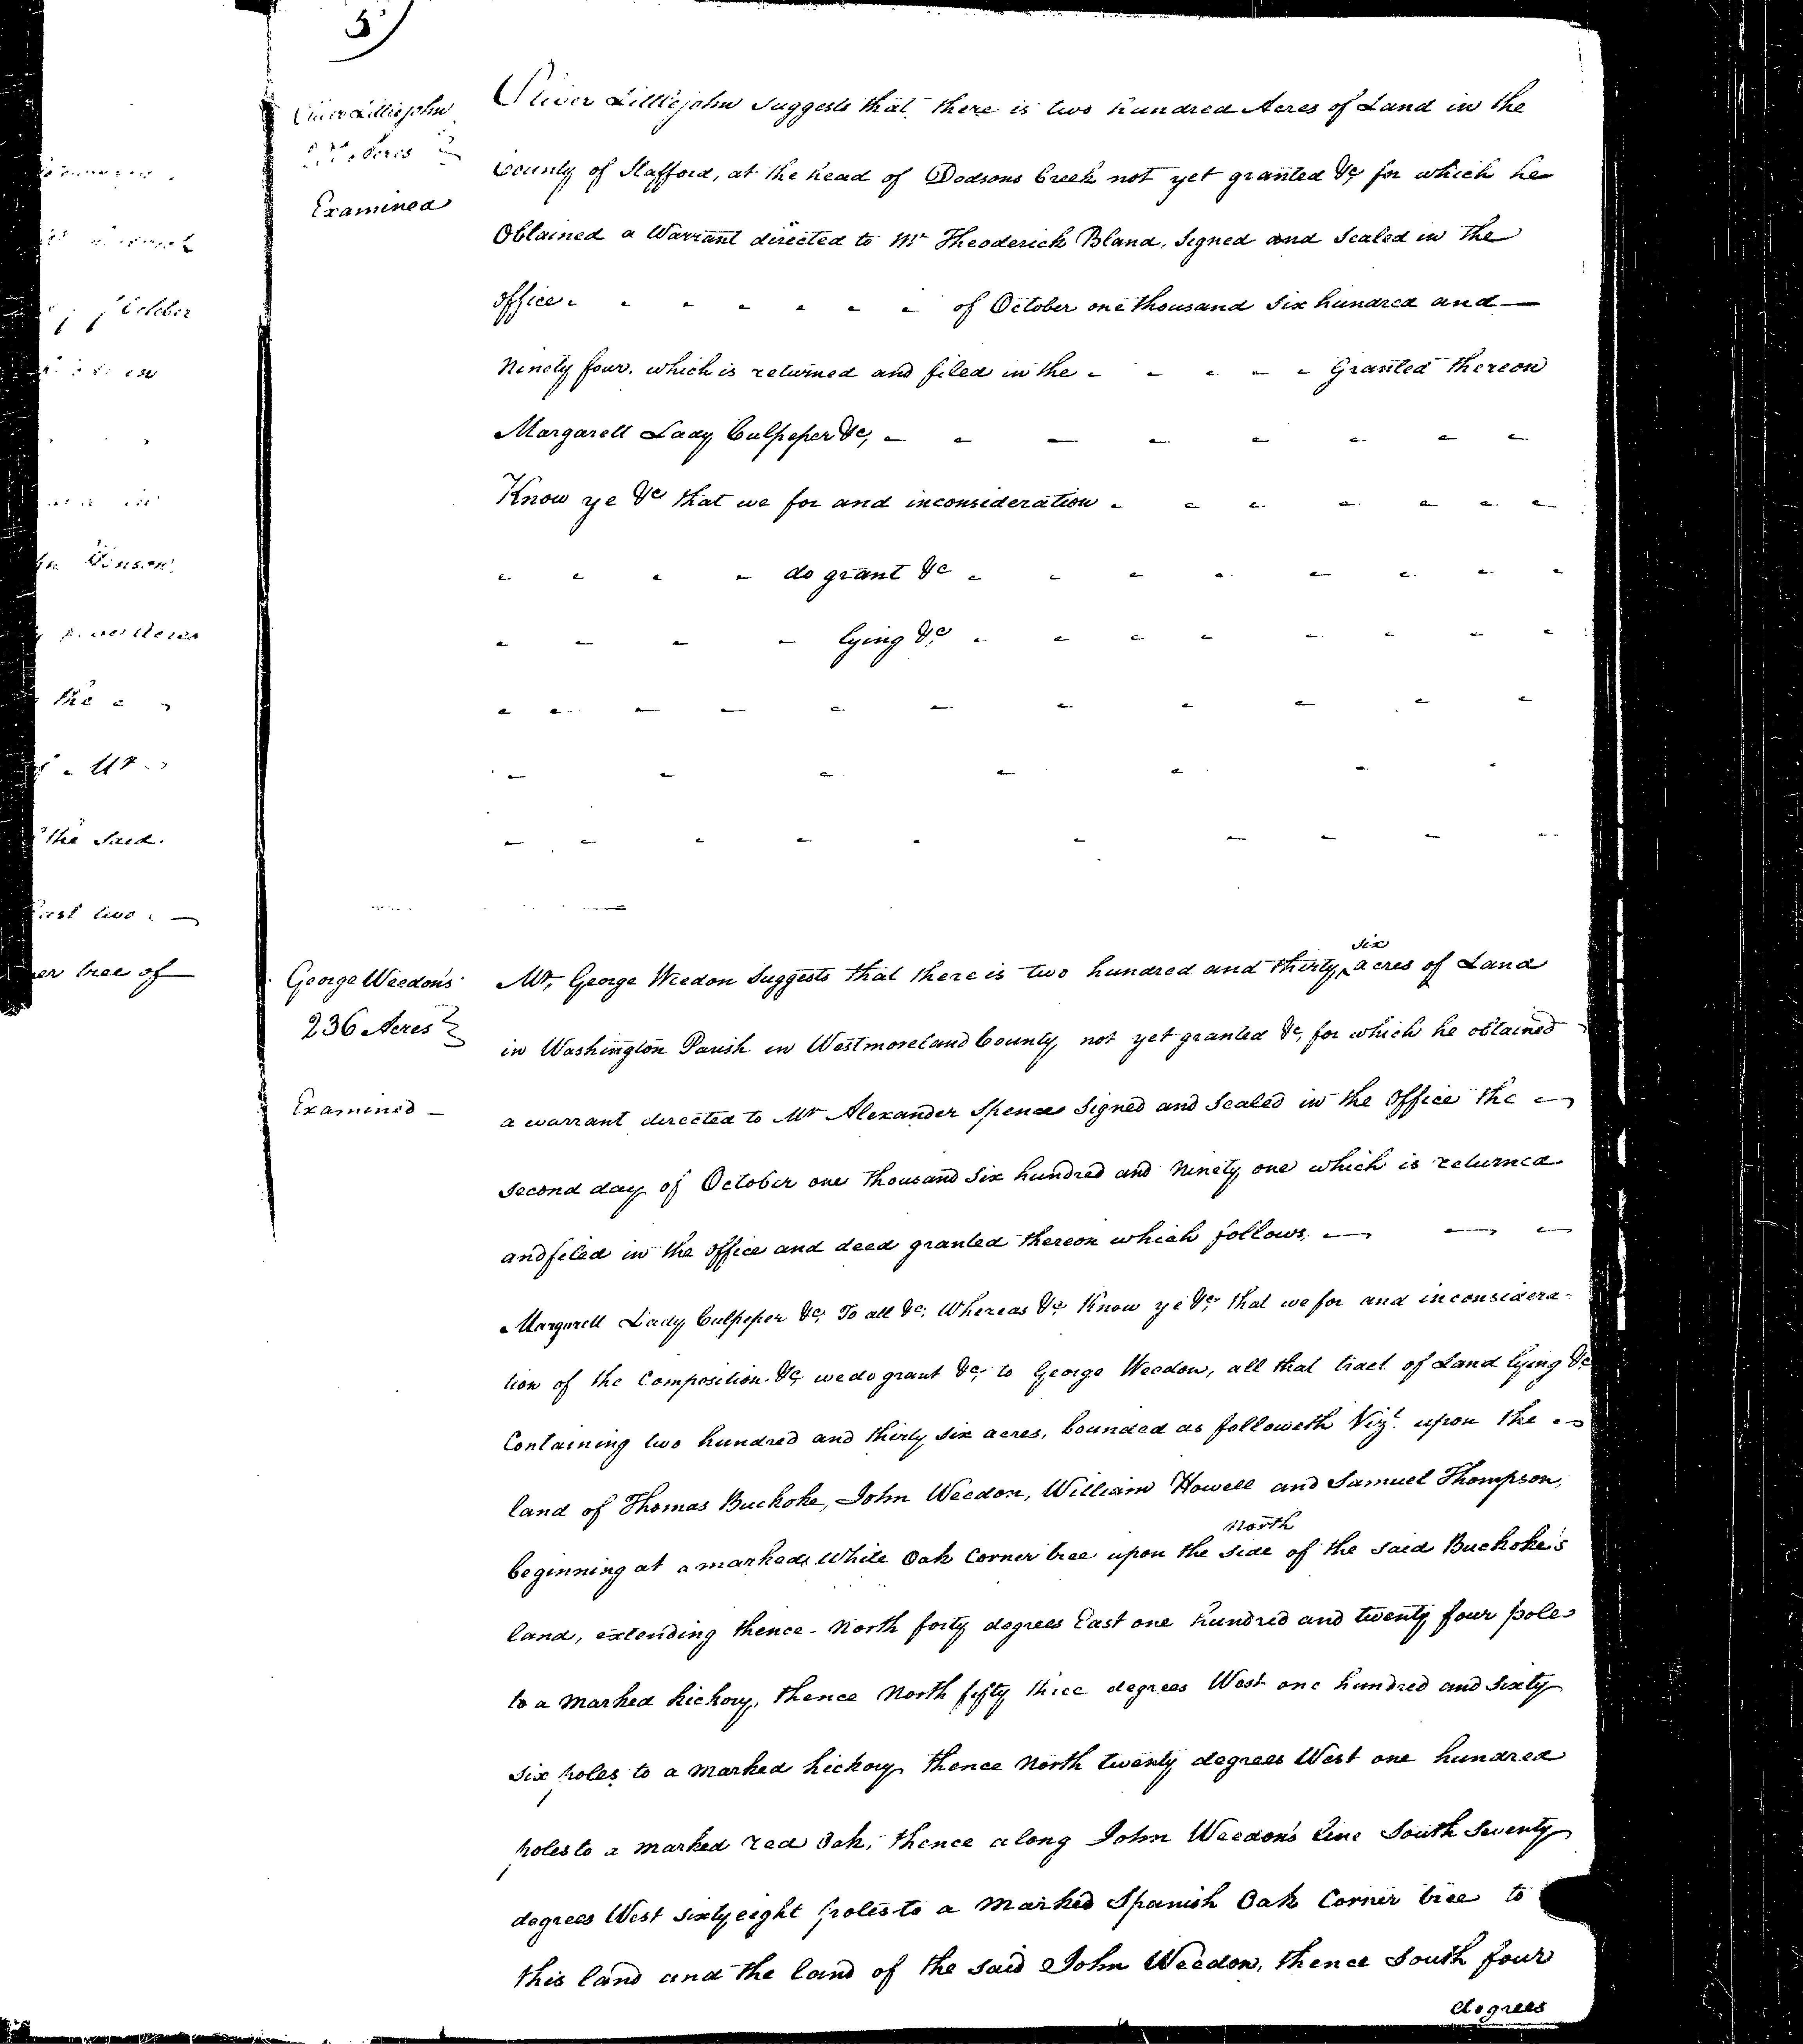 5)
Oliver Littlejohn
Acres
Examined
Oliver Littlejohn suggests that there is two hundred Acres of Land in the
County of Stafford, at the head of Dodsons Creek not yet granted &c, for which he
Obtained a Warrant directed to Mr Theoderick Bland, Signed and Sealed in the
office - - - - - - - of October one thousand Six hundred and —
Ninety four, which is returned and filed in the - - - - - Granted thereon
Margarett Lady Culpeper &c, - - - - - - - -
Know ye &c that we for and inconsideration - - - - - - -
- - - - do grant &c - - - - - - - -
- - - - lying &c - - - - - - - -
George Weedon's
236 Acres
Examined —
Mr, George Weedon Suggests that there is two hundred and thirty six acres of Land
in Washington Parish in Westmoreland County, not yet granted &c, for which he obtained
a warrant directed to Mr Alexander Spence Signed and Sealed in the Office the —
Second day of October one thousand Six hundred and Ninety one which is returned
and filed in the office and deed granted thereon which follows, — — —
Margarett Lady Culpeper &c, To all &c, Whereas &c, Know ye &c, that we for and inconsidera-
tion of the Composition &c, we do grant &c, to George Weedon, all that tract of Land lying &c
Containing two hundred and thirty six acres, bounded as followeth Vizt. upon the —
land of Thomas Buckoke, John Weedon, William Howell and Samuel Thompson,
beginning at a marked White Oak Corner tree upon the North side of the said Buckoke's
land, extending thence - North forty degrees East one hundred and twenty four poles
to a marked hickory, thence North fifty three degrees West one hundred and sixty
six poles to a marked hickory thence North twenty degrees West one hundred
poles to a marked red Oak, thence along John Weedon's line South Seventy
degrees West sixty eight poles to a marked Spanish Oak Corner tree to
this land and the land of the said John Weedon, thence South four
degrees
October
the
the said.
East two
tree of